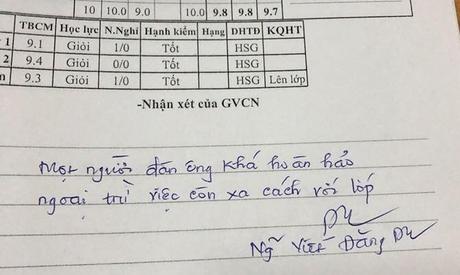 10 10.0 9.0 10.0 9.8 9.8 9.7
TBCM Học lực N.Nghỉ Hạnh kiểm Hạng DHTĐ KQHT
1 9.1 Giỏi 1/0 Tốt HSG
2 9.4 Giỏi 0/0 Tốt HSG
n 9.3 Giỏi 1/0 Tốt HSG Lên lớp
-Nhận xét của GVCN
Một người đàn ông khá hoàn hảo
ngoại trừ việc còn xa cách với lớp
Viết Đăng Du